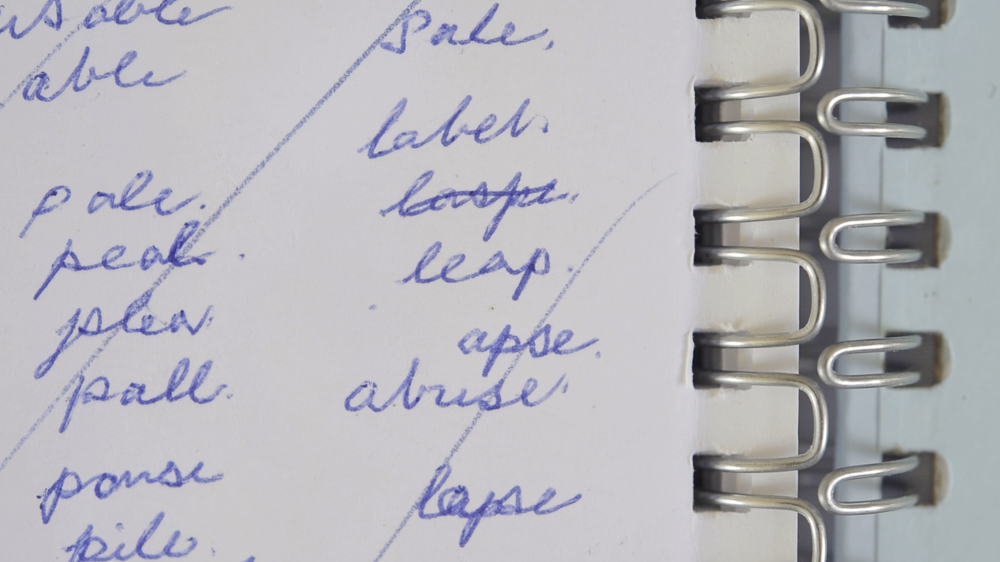 usable
able
pale.
peal.
plea.
pall.
pile.
Sale.
label.
laspe.
leap.
apse.
abuse.
lapse